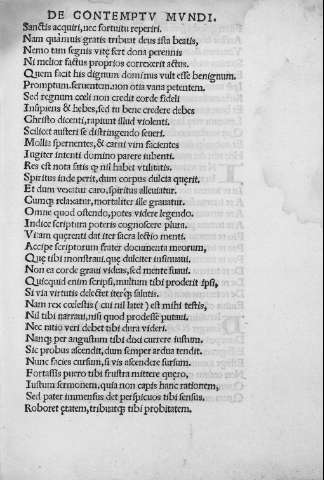 DE CONTEMPTV MVNDI.
Sanctis acquiri, nec fortuitu reperiri.
Nam quãmuis gratis tribuat deus ista beatis,
Nemo tam segnis vitę fert dona perennis
Ni melior factus proprios correxerit actus.
Quem facit his dignum dominus vult esse benignum.
Promptum. feruentem. non otia vana petentem.
Sed regnum cœli non credit corde fideli
Insipiens & hebes, sed tu bene credere debes
Christo dicenti, rapiunt illud violenti.
Scilicet austeri se distringendo seueri.
Mollia spernentes, & carni vim facientes
Iugiter intenti domino parere iubenti.
Res est nota satis ꝙ nil habet vtilitatis.
Spiritus inde perit, dum corpus dulcia quęrit.
Et dum vexatur caro, spiritus alleuiatur.
Cumqꝫ relaxatur, mortaliter ille grauatur.
Omne quod ostendo, potes videre legendo.
Indice scriptura poteris cognoscere plura.
Vitam quęrenti dat iter sacra lectio menti.
Accipe scriptorum frater documenta meorum,
Quę tibi monstraui, quę dulciter insinuaui.
Non ea corde graui videas, sed mente suaui.
Quicquid enim scripsi, multum tibi proderit ipsi,
Si via virtutis delectet iterqꝫ salutis.
Nam rex cœlestis (cui nil latet) est mihi testis,
Nil tibi narraui, nisi quod prodesse putaui.
Nec nitio veri debet tibi dura videri.
Nanqꝫ per angustum tibi dixi currere iustum.
Sic probus ascendit, dum semper ardua tendit.
Nunc facies cursum, si vis ascendere sursum.
Fortassis puero tibi frustra mittere quęro,
Iustum sermonem, quia non capis hanc rationem,
Sed pater immensus det perspicuos tibi sensus.
Roboret ętatem, tribuatqꝫ tibi probitatem.